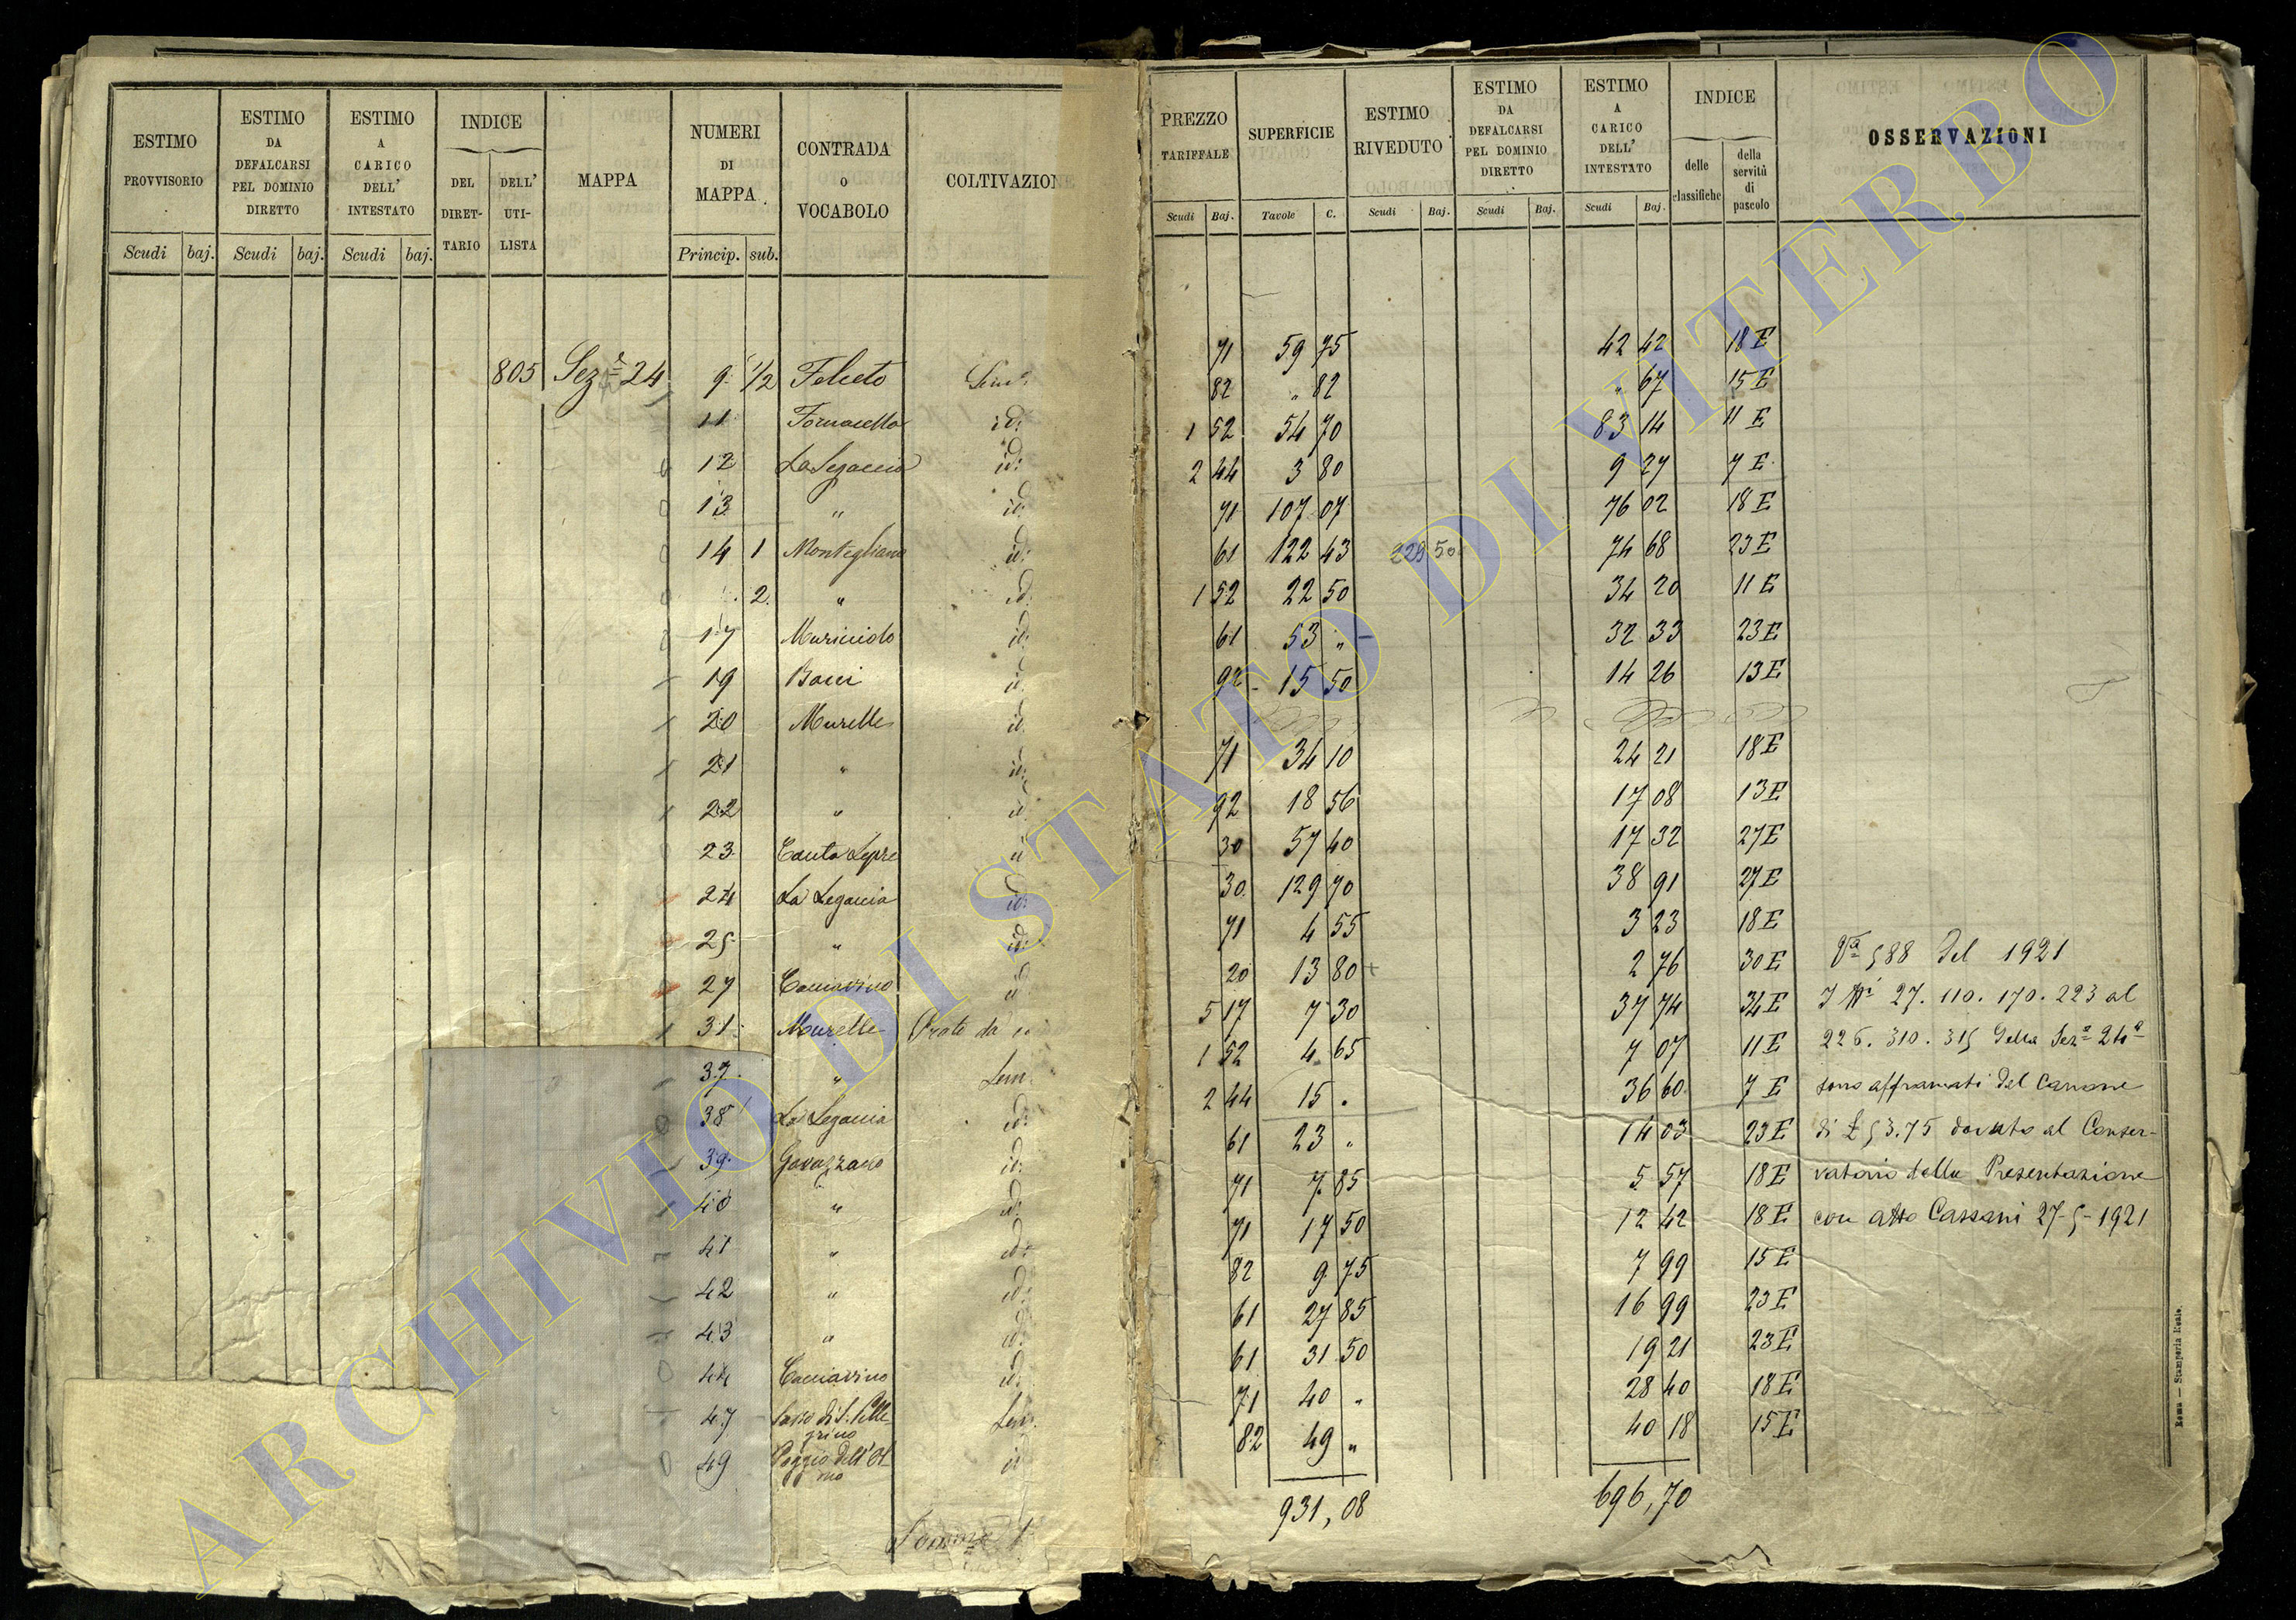 ESTIMO PROVVISORIO Scudi baj.
ESTIMO DA DEFALCARSI PEL DOMINIO DIRETTO Scudi baj.
ESTIMO A CARICO DELL' INTESTATO Scudi baj.
INDICE DEL DIRETTARIO DELL' UTILISTA
MAPPA
NUMERI DI MAPPA Princip. sub.
CONTRADA O VOCABOLO
COLTIVAZIONE
805 Sezᵉ 24 9 1/2 Felceto Semᵒ
11 Fornacella id:
12 La Legaccia id:
13 " id:
14 1 Montegliano id:
2 " id:
17 id:
19 Bacci id:
20 Murelle id:
21 " id:
22 " id:
23 Canta Lepre id
24 La Legaccia id:
25 " id:
27 Cacciavino id
31 Murelle Prato da
37 " Sem.
38 La Legaccia id:
39 Gavazzano id:
40 " id:
41 " id:
42 " id:
43 " id:
44 Cacciavino id:
47 Sasso di S. Pelle Sem.
grino
49 Poggio dell' Ol id
mo
Somma
PREZZO TARIFFALE Scudi Baj.
SUPERFICIE Tavole C.
ESTIMO RIVEDUTO Scudi Baj.
ESTIMO DA DEFALCARSI PEL DOMINIO DIRETTO Scudi Baj.
ESTIMO A CARICO DELL' INTESTATO Scudi Baj.
INDICE delle classifiche della servitù di pascolo
OSSERVAZIONI
71 59 75 42 42 18 E
82 " 82 " 67 15 E
1 52 54 70 83 14 11 E
2 44 3 80 9 27 7 E
71 107 07 76 02 18 E
61 122 43 229 50 74 68 23 E
1 52 22 50 34 20 11 E
61 53 " 32 33 23 E
92 15 50 14 26 13 E
71 34 10 24 21 18 E
92 18 56 17 08 13 E
30 57 40 17 32 27 E
30 129 70 38 91 27 E
71 4 55 3 23 18 E
20 13 80 2 76 30 E Vᵃ 588 del 1921
5 17 7 30 37 74 34 E I Nⁱ 27. 110. 170. 223 al
1 52 4 65 7 07 11 E 226. 310. 315 della Sezᵉ 24ᵃ
2 44 15 . 36 60 7 E sono affrancati del Canone
61 23 " 14 03 23 E di £ 53.75 dovuto al Conser-
71 7 85 5 57 18 E vatorio della Presentazione
71 17 50 12 42 18 E con atto Cassani 27-5-1921
82 9 75 7 99 15 E
61 27 85 16 99 23 E
61 31 50 19 21 23 E
71 40 " 28 40 18 E
82 49 " 40 18 15 E
931,08 696,70
Roma — Stamperia Reale.
ARCHIVIO DI STATO DI VITERBO